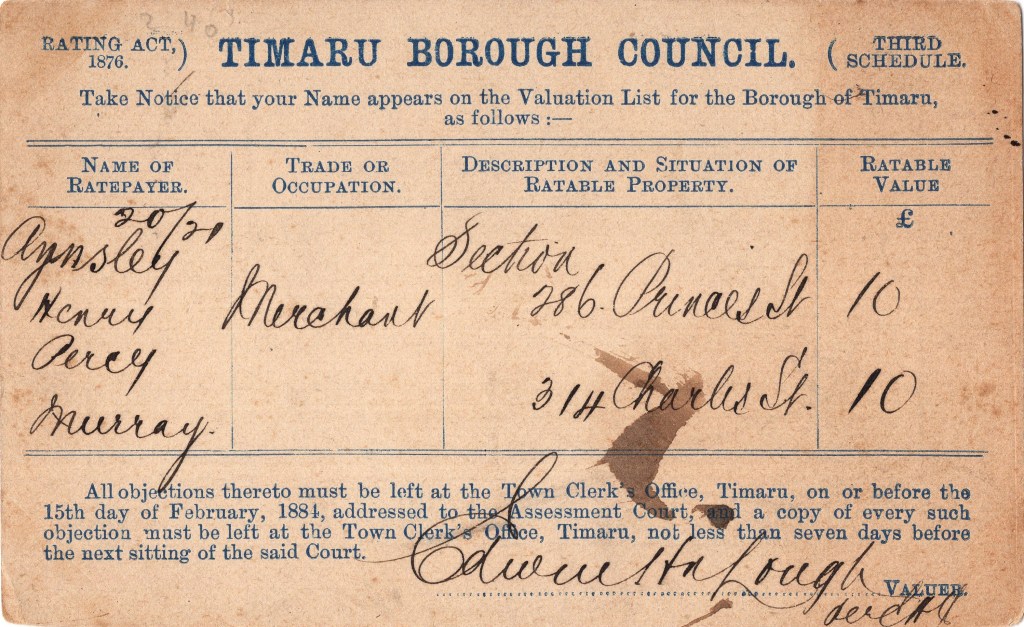 RATING ACT, 1876.) TIMARU BOROUGH COUNCIL. (THIRD SCHEDULE.
Take Notice that your Name appears on the Valuation List for the Borough of Timaru,
as follows :—
NAME OF RATEPAYER.
TRADE OR OCCUPATION.
DESCRIPTION AND SITUATION OF RATABLE PROPERTY.
RATABLE VALUE
£
20/21
Aynsley
Henry
Percy
Murray.
Merchant
Section
286. Princes St 10
314 Charles St. 10
All objections thereto must be left at the Town Clerk's Office, Timaru, on or before the
15th day of February, 1884, addressed to the Assessment Court, and a copy of every such
objection must be left at the Town Clerk's Office, Timaru, not less than seven days before
the next sitting of the said Court.
Edwin H. Lough
VALUER.